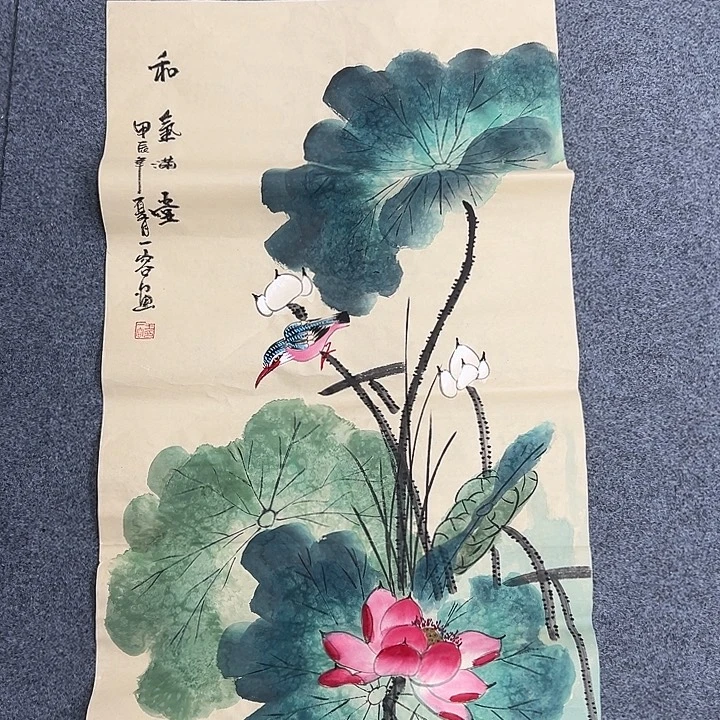 和氣滿堂
甲辰年夏月一容畫